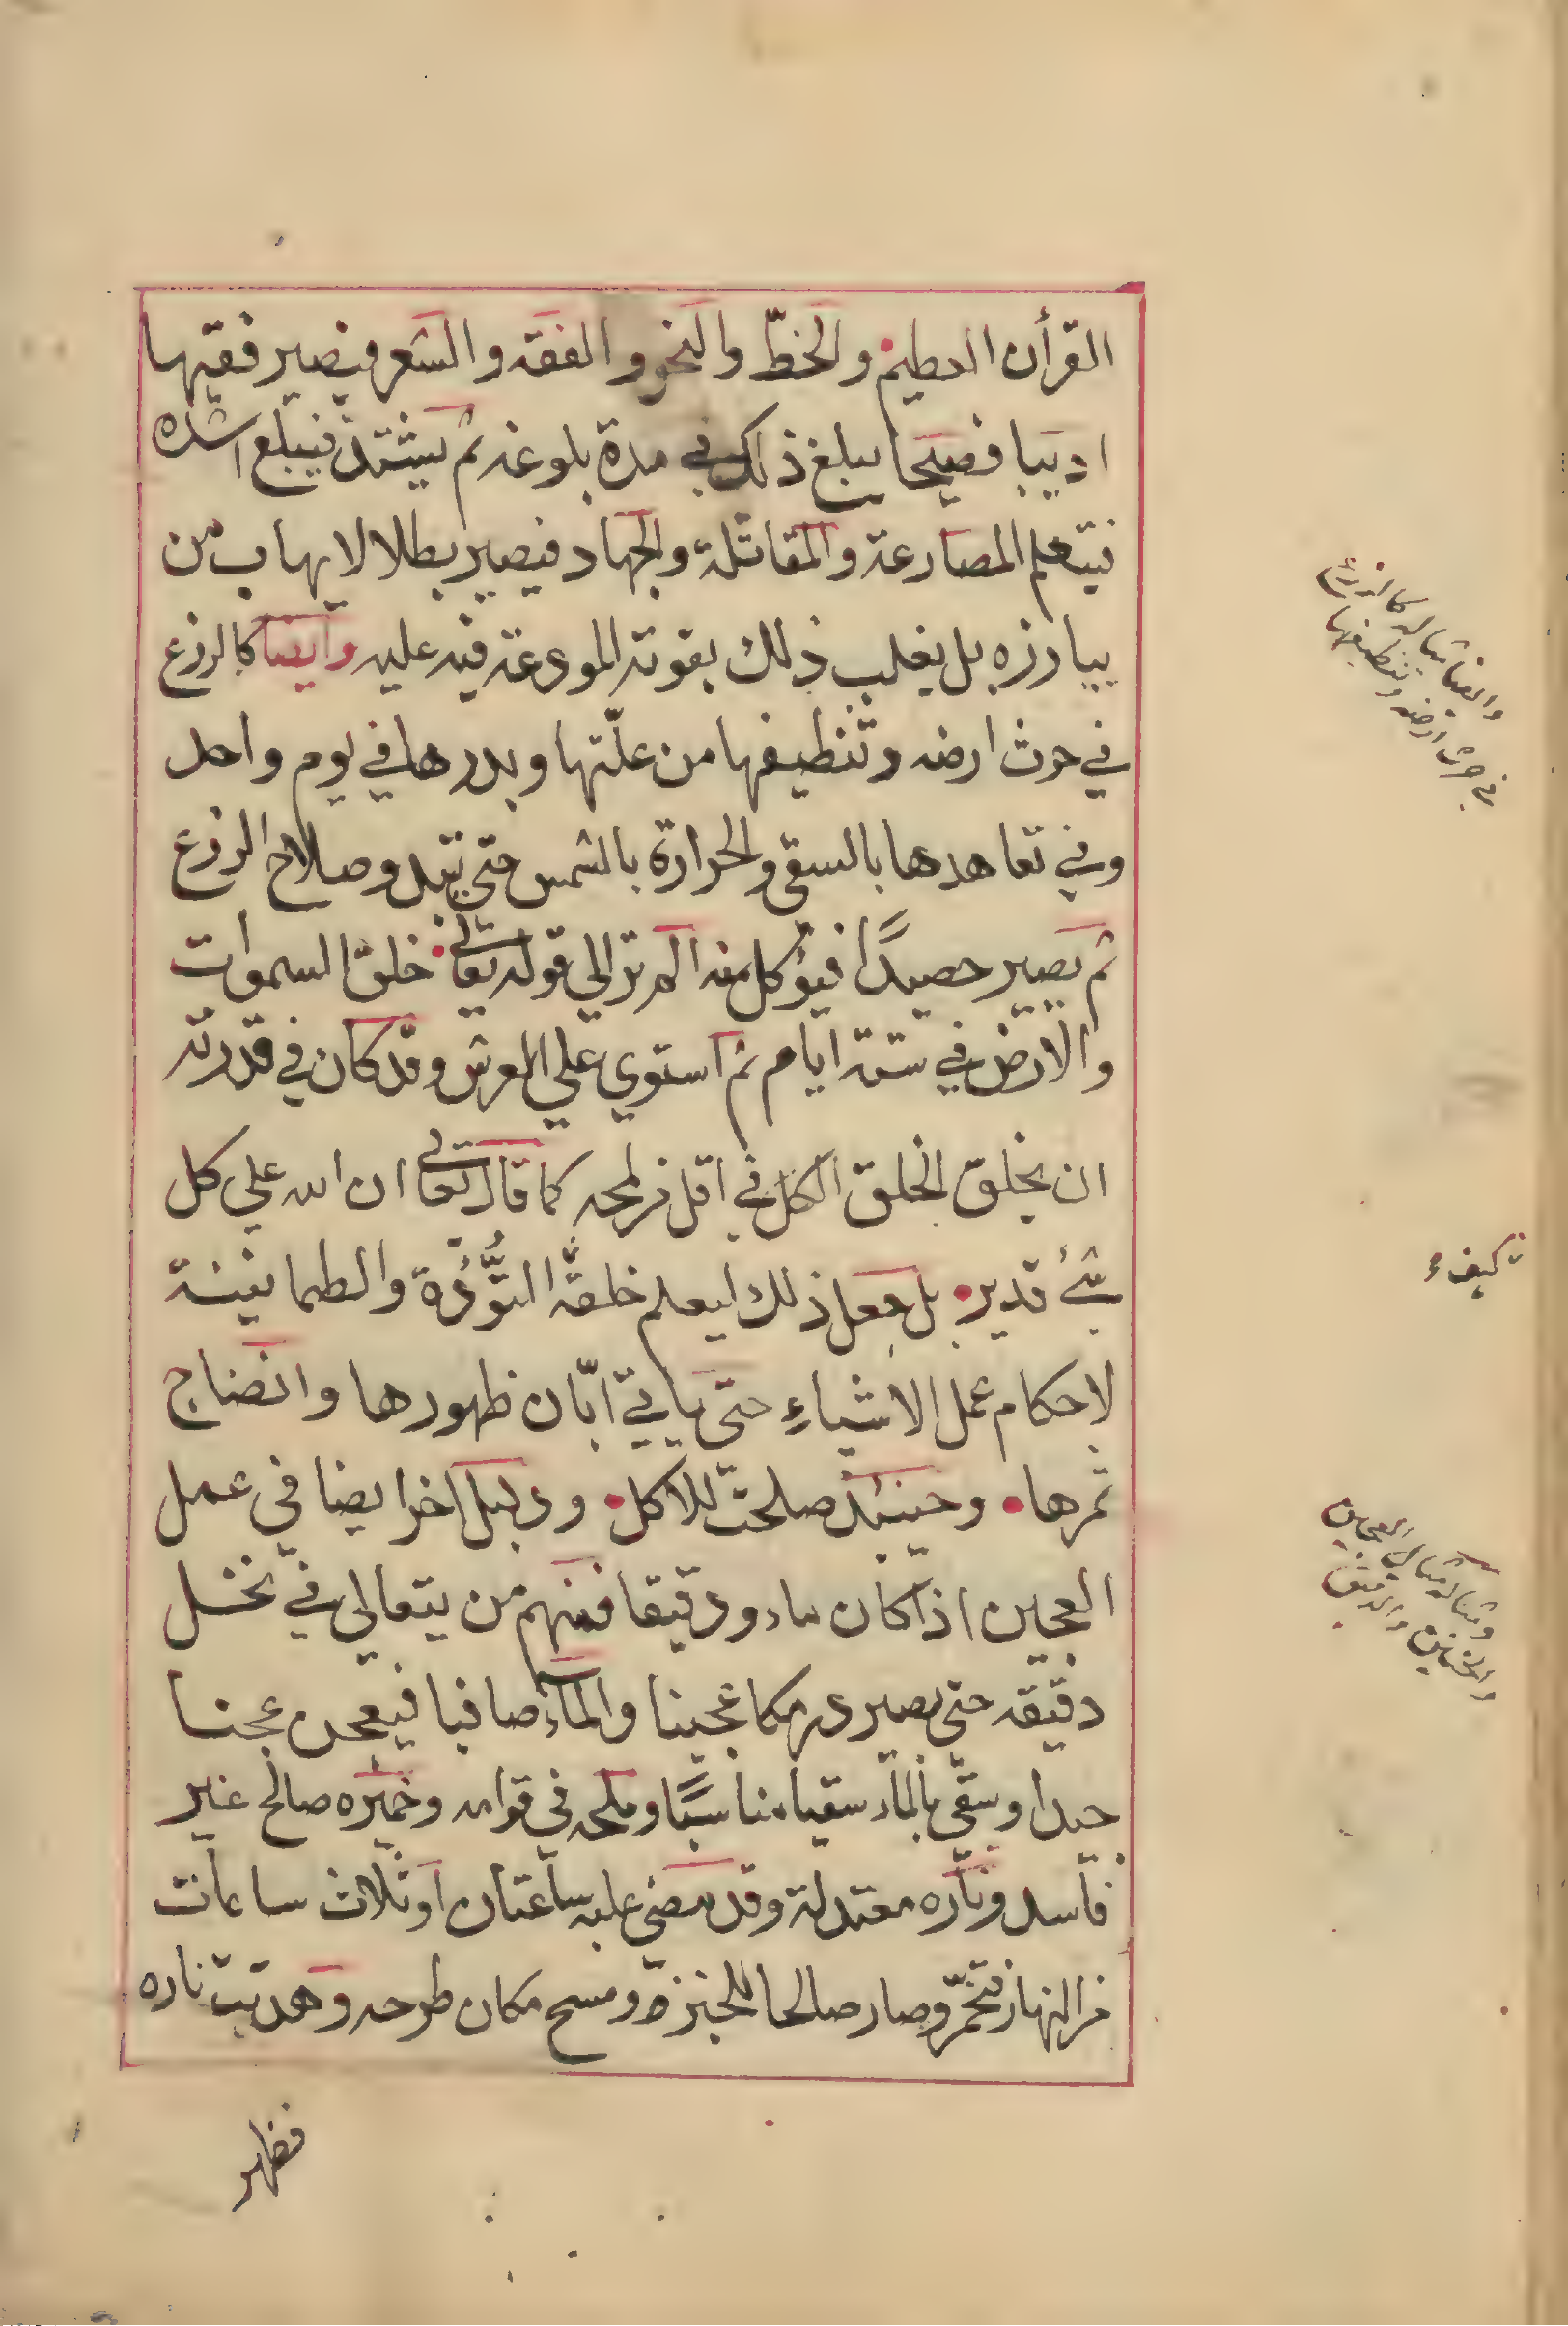 القرأن العظيم والخطّ والنحو والفقه والشعر فيصير فقيها
اديبا فصيحا يبلغ ذلك في مدة بلوغه ثم يشتد فيبلغ اشده
فيتعلم المصارعة والمقاتلة والجهاد فيصير بطلا لا يهاب من
يبارزه بل يغلب ذلك بقوته المودعة فيه عليه وايضا كالزرع
في حرث ارضه وتنظيفها من علّتها وبدرها في يوم واحد
وفي تعاهدها بالسقي والحرارة بالشمس حتي يبدو صلاح الزرع
ثم يصير حصيدًا فيؤكل منه الم تر الي قوله تعالي خلق السموات
والارض في ستة ايام ثم استوي علي العرش وقد كان في قدرته
ان يخلق الخلق الكل في اقل من لمحه كما قال تعالي ان الله علي كل
شئ قدير بل جعل ذلك ليعلم خلقه التُّؤَدة والطمانينة
لاحكام عمل الاشياء حتي ياتي ابّان ظهورها وانضاج
ثمرها وحينئذ صلحت للاكل ودليل اخر ايضا في عمل
العجين اذا كان ماء ودقيقا فمنهم من يتعالي في نخل
دقيقه حتي يصير درمكا عجينا والماء صافيا فيعجن عجنا
جيدا وسقي بالماء سقيا مناسبًا وملحه في قوامه وخميره صالح غير
فاسد وناره معتدلة وقد مضي عليه ساعتان او ثلاث ساعات
من النهار فتخمّر وصار صالحا للخبزة ومسح مكان طرحه وهديت ناره
فظهر
وايضا مثاله كالزرع
في حرث ارضه وتنظيفها
كيف
ومثاله مثال العجين
والخبز والدقيق